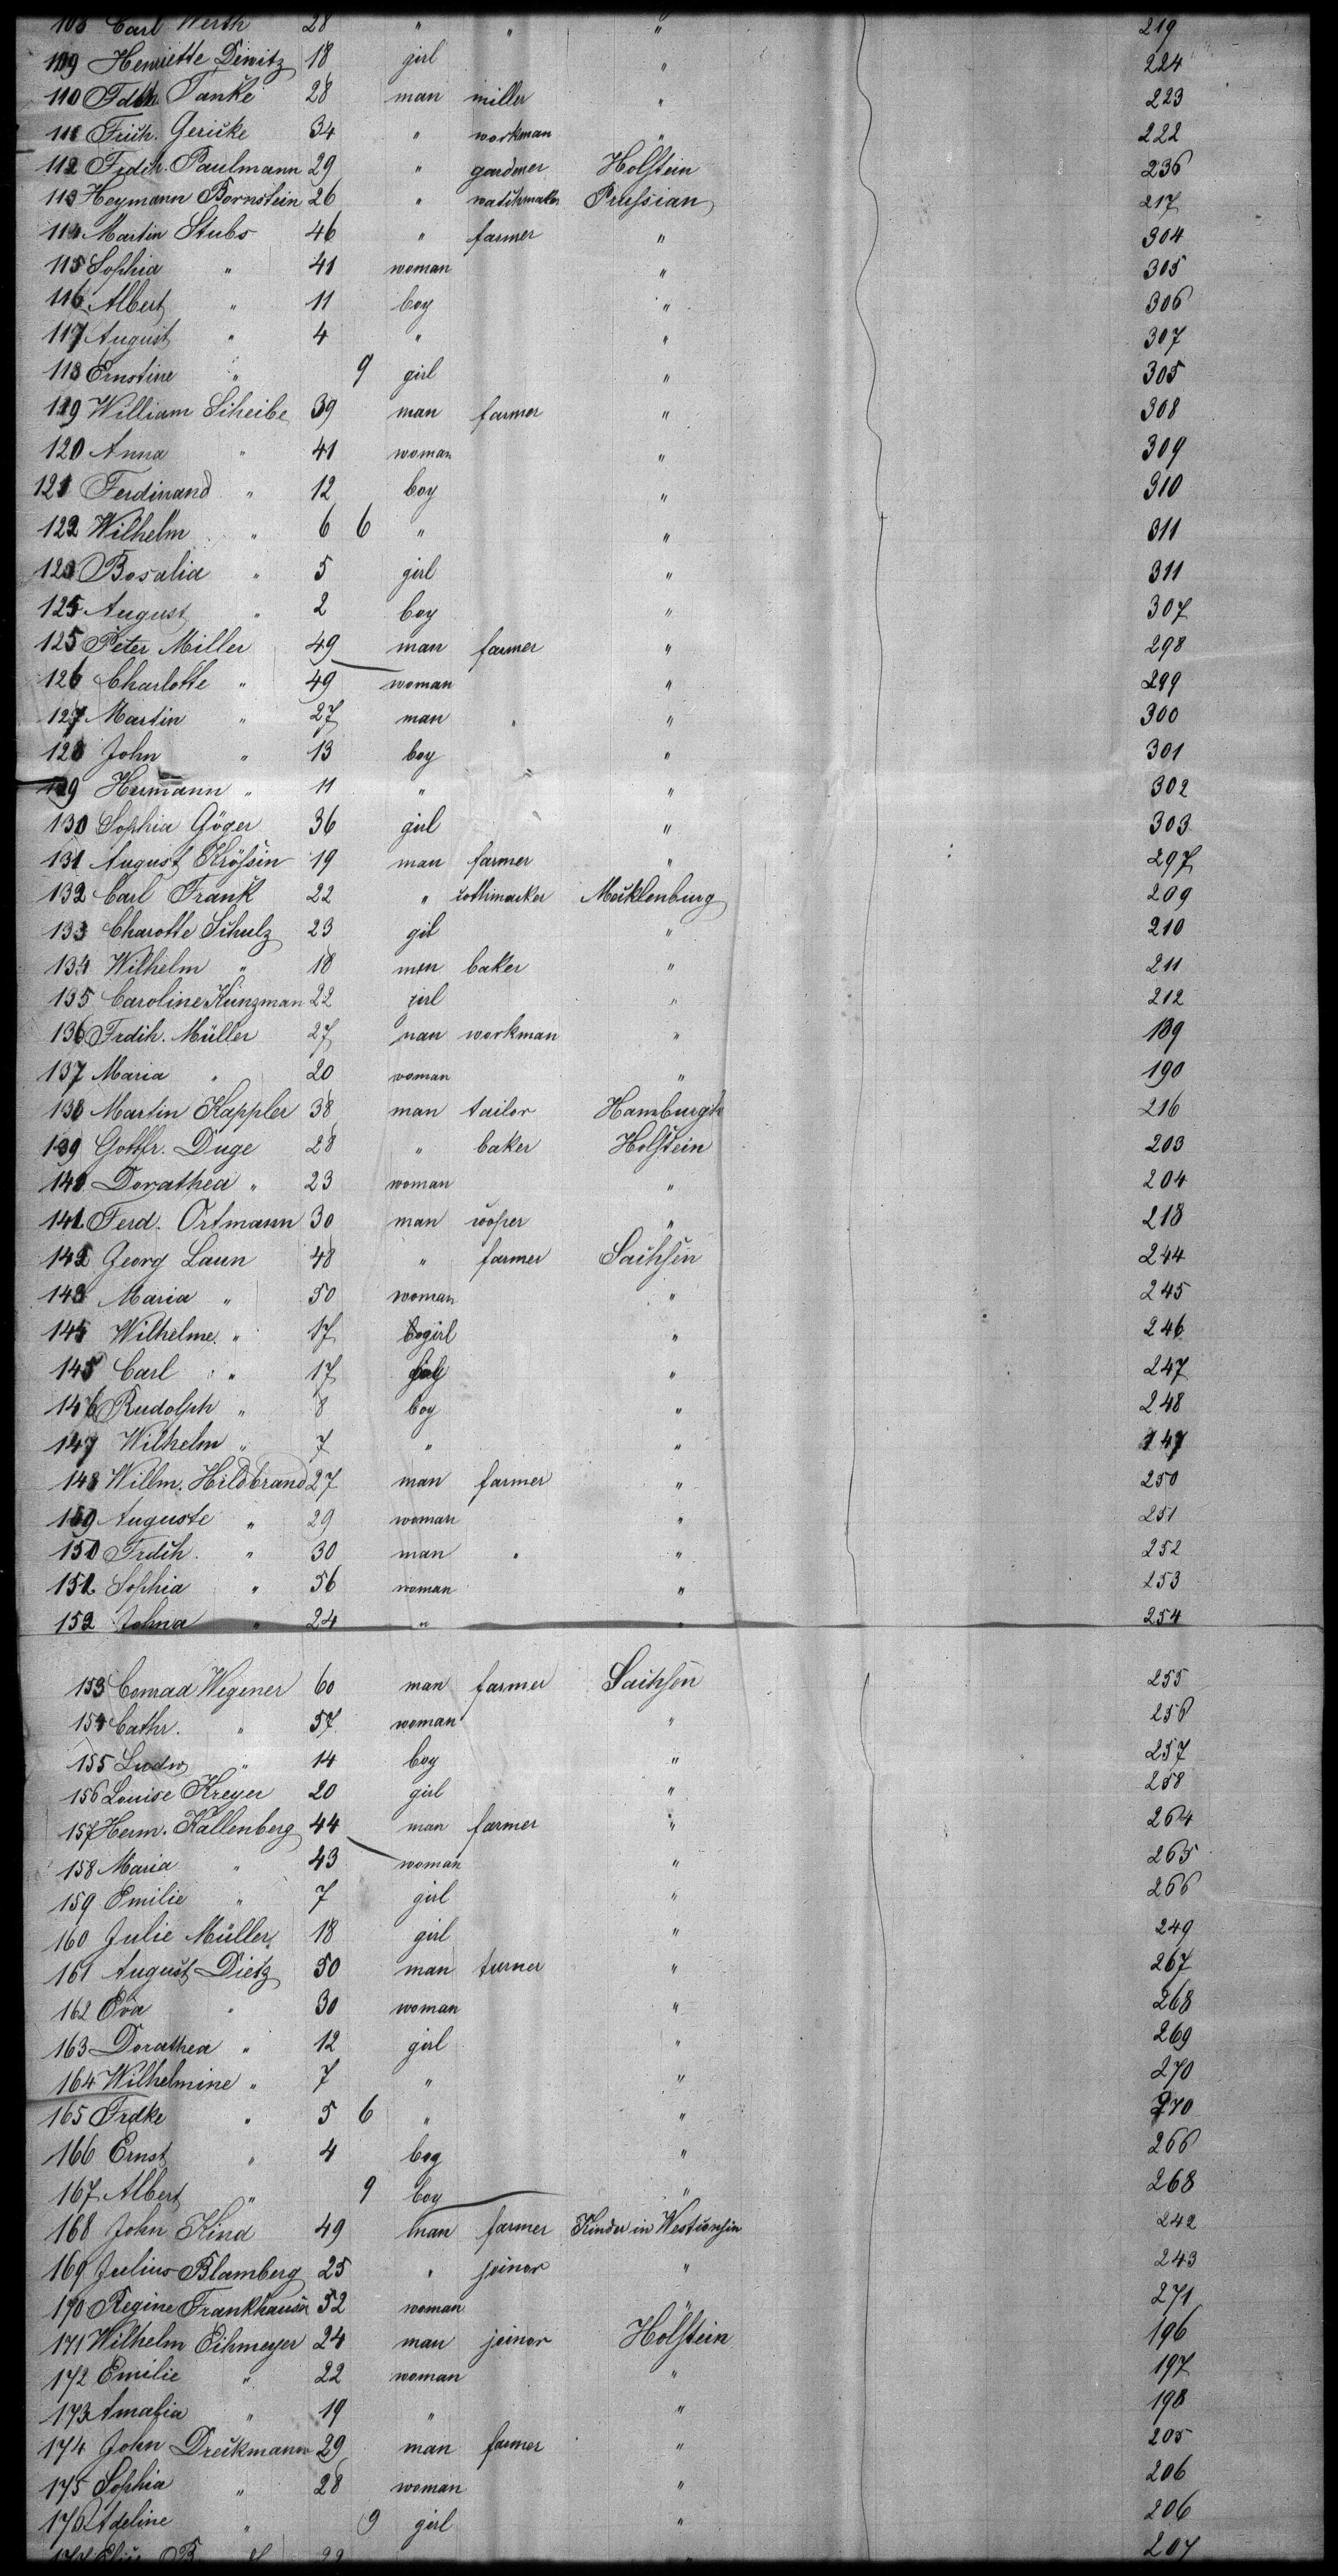 108 Carl Werth 28 " " " 219
109 Henriette Dewitz 18 girl " 224
110 Fdch. Tanke 28 man miller " 223
111 Frich. Gericke 34 " workman " 222
112 Frdch. Paulmann 29 " gardner Holstein 236
113 Heymann Bornstein 26 " watchmaker Prussian 217
114 Martin Stubs 46 " farmer " 304
115 Sophia " 41 woman " 305
116 Albert " 11 boy " 306
117 August " 4 " " 307
118 Ernstine " 9 girl " 305
119 William Scheibe 39 man farmer " 308
120 Anna " 41 woman " 309
121 Ferdinand " 12 boy " 310
122 Wilhelm " 6 6 " " 311
123 Rosalia " 5 girl " 311
125 August " 2 boy " 307
125 Peter Miller 49 man farmer " 298
126 Charlotte " 49 woman " 299
127 Martin " 27 man " " 300
128 John " 13 boy " 301
129 Hermann " 11 " " 302
130 Sophia Göger 36 girl " 303
131 August Krössin 19 man farmer " 297
132 Carl Frank 22 " clothmarker Mecklenburg 209
133 Charotte Schulz 23 gil " 210
134 Wilhelm " 18 man baker " 211
135 Caroline Kunzman 22 girl " 212
136 Frdch. Müller 27 man workman " 189
137 Maria " 20 woman " 190
138 Martin Kappler 38 man tailor Hamburgh 216
139 Gottfr. Duge 28 " baker Holstein 203
140 Dorathea " 23 woman " 204
141 Ferd. Ortmann 30 man cooper " 218
142 Georg Laun 48 " farmer Sachsen 244
143 Maria " 50 woman " 245
144 Wilhelme. " 17 girl " 246
145 Carl " 17 " 247
146 Rudolph " 8 boy " 248
147 Wilhelm " 7 " " 147
148 Willm. Hildbrand 27 man farmer " 250
149 Auguste " 29 woman " 251
150 Frdch. " 30 man " " 252
151 Sophia " 56 woman " 253
152 Johna " 24 " " 254
153 Conrad Wegener 60 man farmer Sachsen 255
154 Cathr. " 57 woman " 256
155 Ludw " 14 boy " 257
156 Louise Kreyer 20 girl " 258
157 Herm. Kallenberg 44 man farmer " 264
158 Maria " 43 woman " 265
159 Emilie " 7 girl " 266
160 Julie Müller 18 girl " 249
161 August Dietz 50 man turner " 267
162 Eva " 30 woman " 268
163 Dorathea " 12 girl " 269
164 Wilhelmine " 7 " " 270
165 Frdke " 5 6 " " 270
166 Ernst " 4 boy " 266
167 Albert " 9 boy " 268
168 John Kind 49 man farmer Kinder in Westconsin 242
169 Julius Blamberg 25 " joiner " 243
170 Regine Frankhauser 52 woman " 271
171 Wilhelm Eihmeyer 24 man joiner Holstein 196
172 Emilie " 22 woman " 197
173 Amalia " 19 " " 198
174 John Dreckmann 29 man farmer " 205
175 Sophia " 28 woman " 206
176 Adeline " 9 girl " 206
177 22 " 207